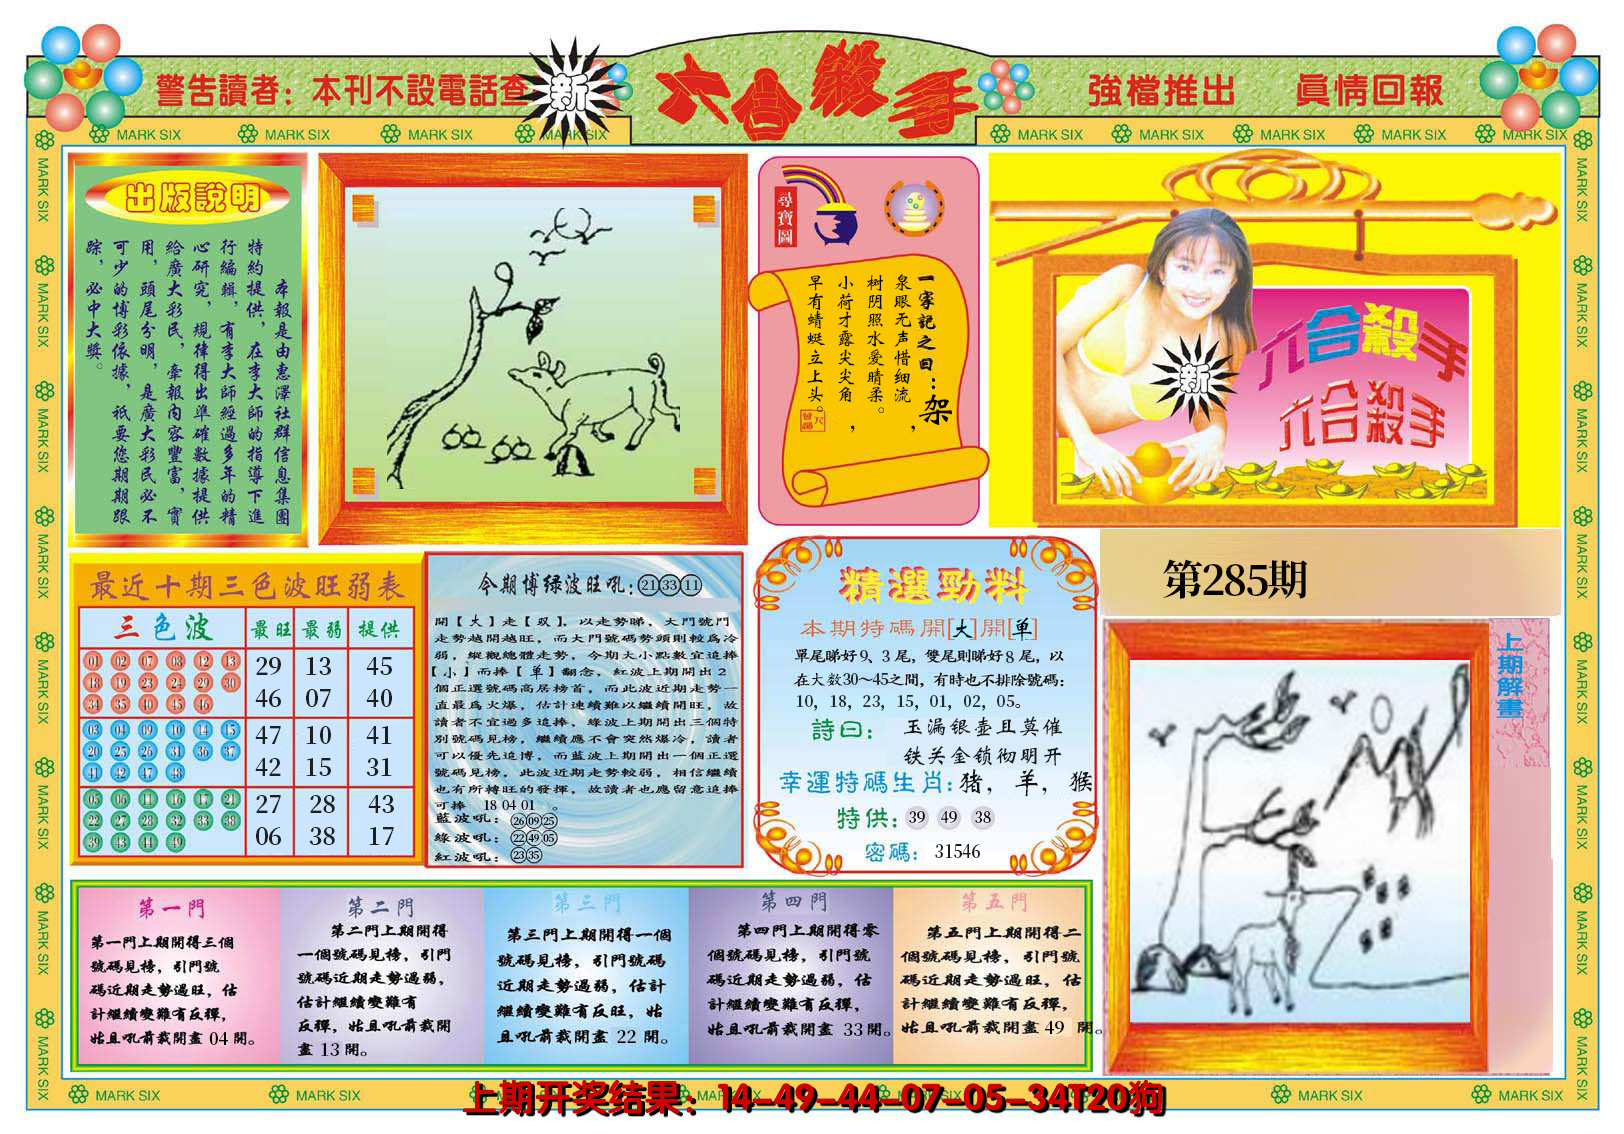 警告讀者：本刊不設電話查
新
六合殺手
強檔推出 真情回報
MARK SIX
出版說明
本報是由惠澤社群信息集團
特約提供，在李大師的指導下進
行編輯，有李大師經過多年的精
心研究，規律得出準確數據提供
給廣大彩民，牽報內容豐富，實
用，頭尾分明，是廣大彩民必不
可少的博彩依據，祇要您期期跟
踪，必中大獎。
尋寶圖
一家記之曰：架
泉眼无声惜细流，
树阴照水爱晴柔。
小荷才露尖尖角，
早有蜻蜓立上头。
六合殺手
六合殺手
新
第285期
上期解畫
最近十期三色波旺弱表
三色波 最旺 最弱 提供
01 02 07 08 12 13
18 19 23 24 29 30
34 35 40 45 46
29 13 45
46 07 40
03 04 09 10 14 15
20 25 26 31 36 37
41 42 47 48
47 10 41
42 15 31
05 06 11 16 17 21
22 27 28 32 33 38
39 43 44 49
27 28 43
06 38 17
今期博绿波旺吼：21 33 11
開【大】走【双】，以走勢睇，大門號門
走勢越開越旺，而大門號碼勢頭則較爲冷
弱，縱觀總體走勢，今期大小點數宜追捧
【小】而捧【单】翻念，紅波上期開出2
個正選號碼高居榜首，而此波近期走勢一
直最爲火爆，估計連續難以繼續開旺，故
讀者不宜過多追捧，綠波上期開出三個特
別號碼見榜，繼續應不會突然爆冷，讀者
可以優先追博，而藍波上期開出一個正選
號碼見榜，此波近期走勢較弱，相信繼續
也有所轉旺的發揮，故讀者也應留意追捧
可捧 18 04 01 。
藍波吼：26 09 25
綠波吼：22 49 05
紅波吼：23 35
精選勁料
本期特碼開[大]開[单]
單尾睇好9、3尾，雙尾則睇好8尾，以
在大数30～45之間，有時也不排除號碼：
10，18，23，15，01，02，05。
詩曰： 玉漏银壶且莫催
铁关金锁彻明开
幸運特碼生肖：猪，羊，猴
特供：39 49 38
密碼：31546
第一門
第一門上期開得三個
號碼見榜，引門號
碼近期走勢過旺，估
計繼續變難有反彈，
姑且吼前裁開畫 04 開。
第二門
第二門上期開得
一個號碼見榜，引門
號碼近期走勢過弱，
估計繼續變難有
反彈，姑且吼前裁開
畫 13 開。
第三門
第三門上期開得一個
號碼見榜，引門號碼
近期走勢過弱，估計
繼續變難有反旺，姑
且吼前裁開畫 22 開。
第四門
第四門上期開得零
個號碼見榜，引門號
碼近期走勢過弱，估
計繼續變難有反彈，
姑且吼前裁開畫 33 開。
第五門
第五門上期開得二
個號碼見榜，引門號
碼近期走勢過旺，估
計繼續變難有反彈，
姑且吼前裁開畫 49 開。
上期开奖结果：14-49-44-07-05-34T20狗